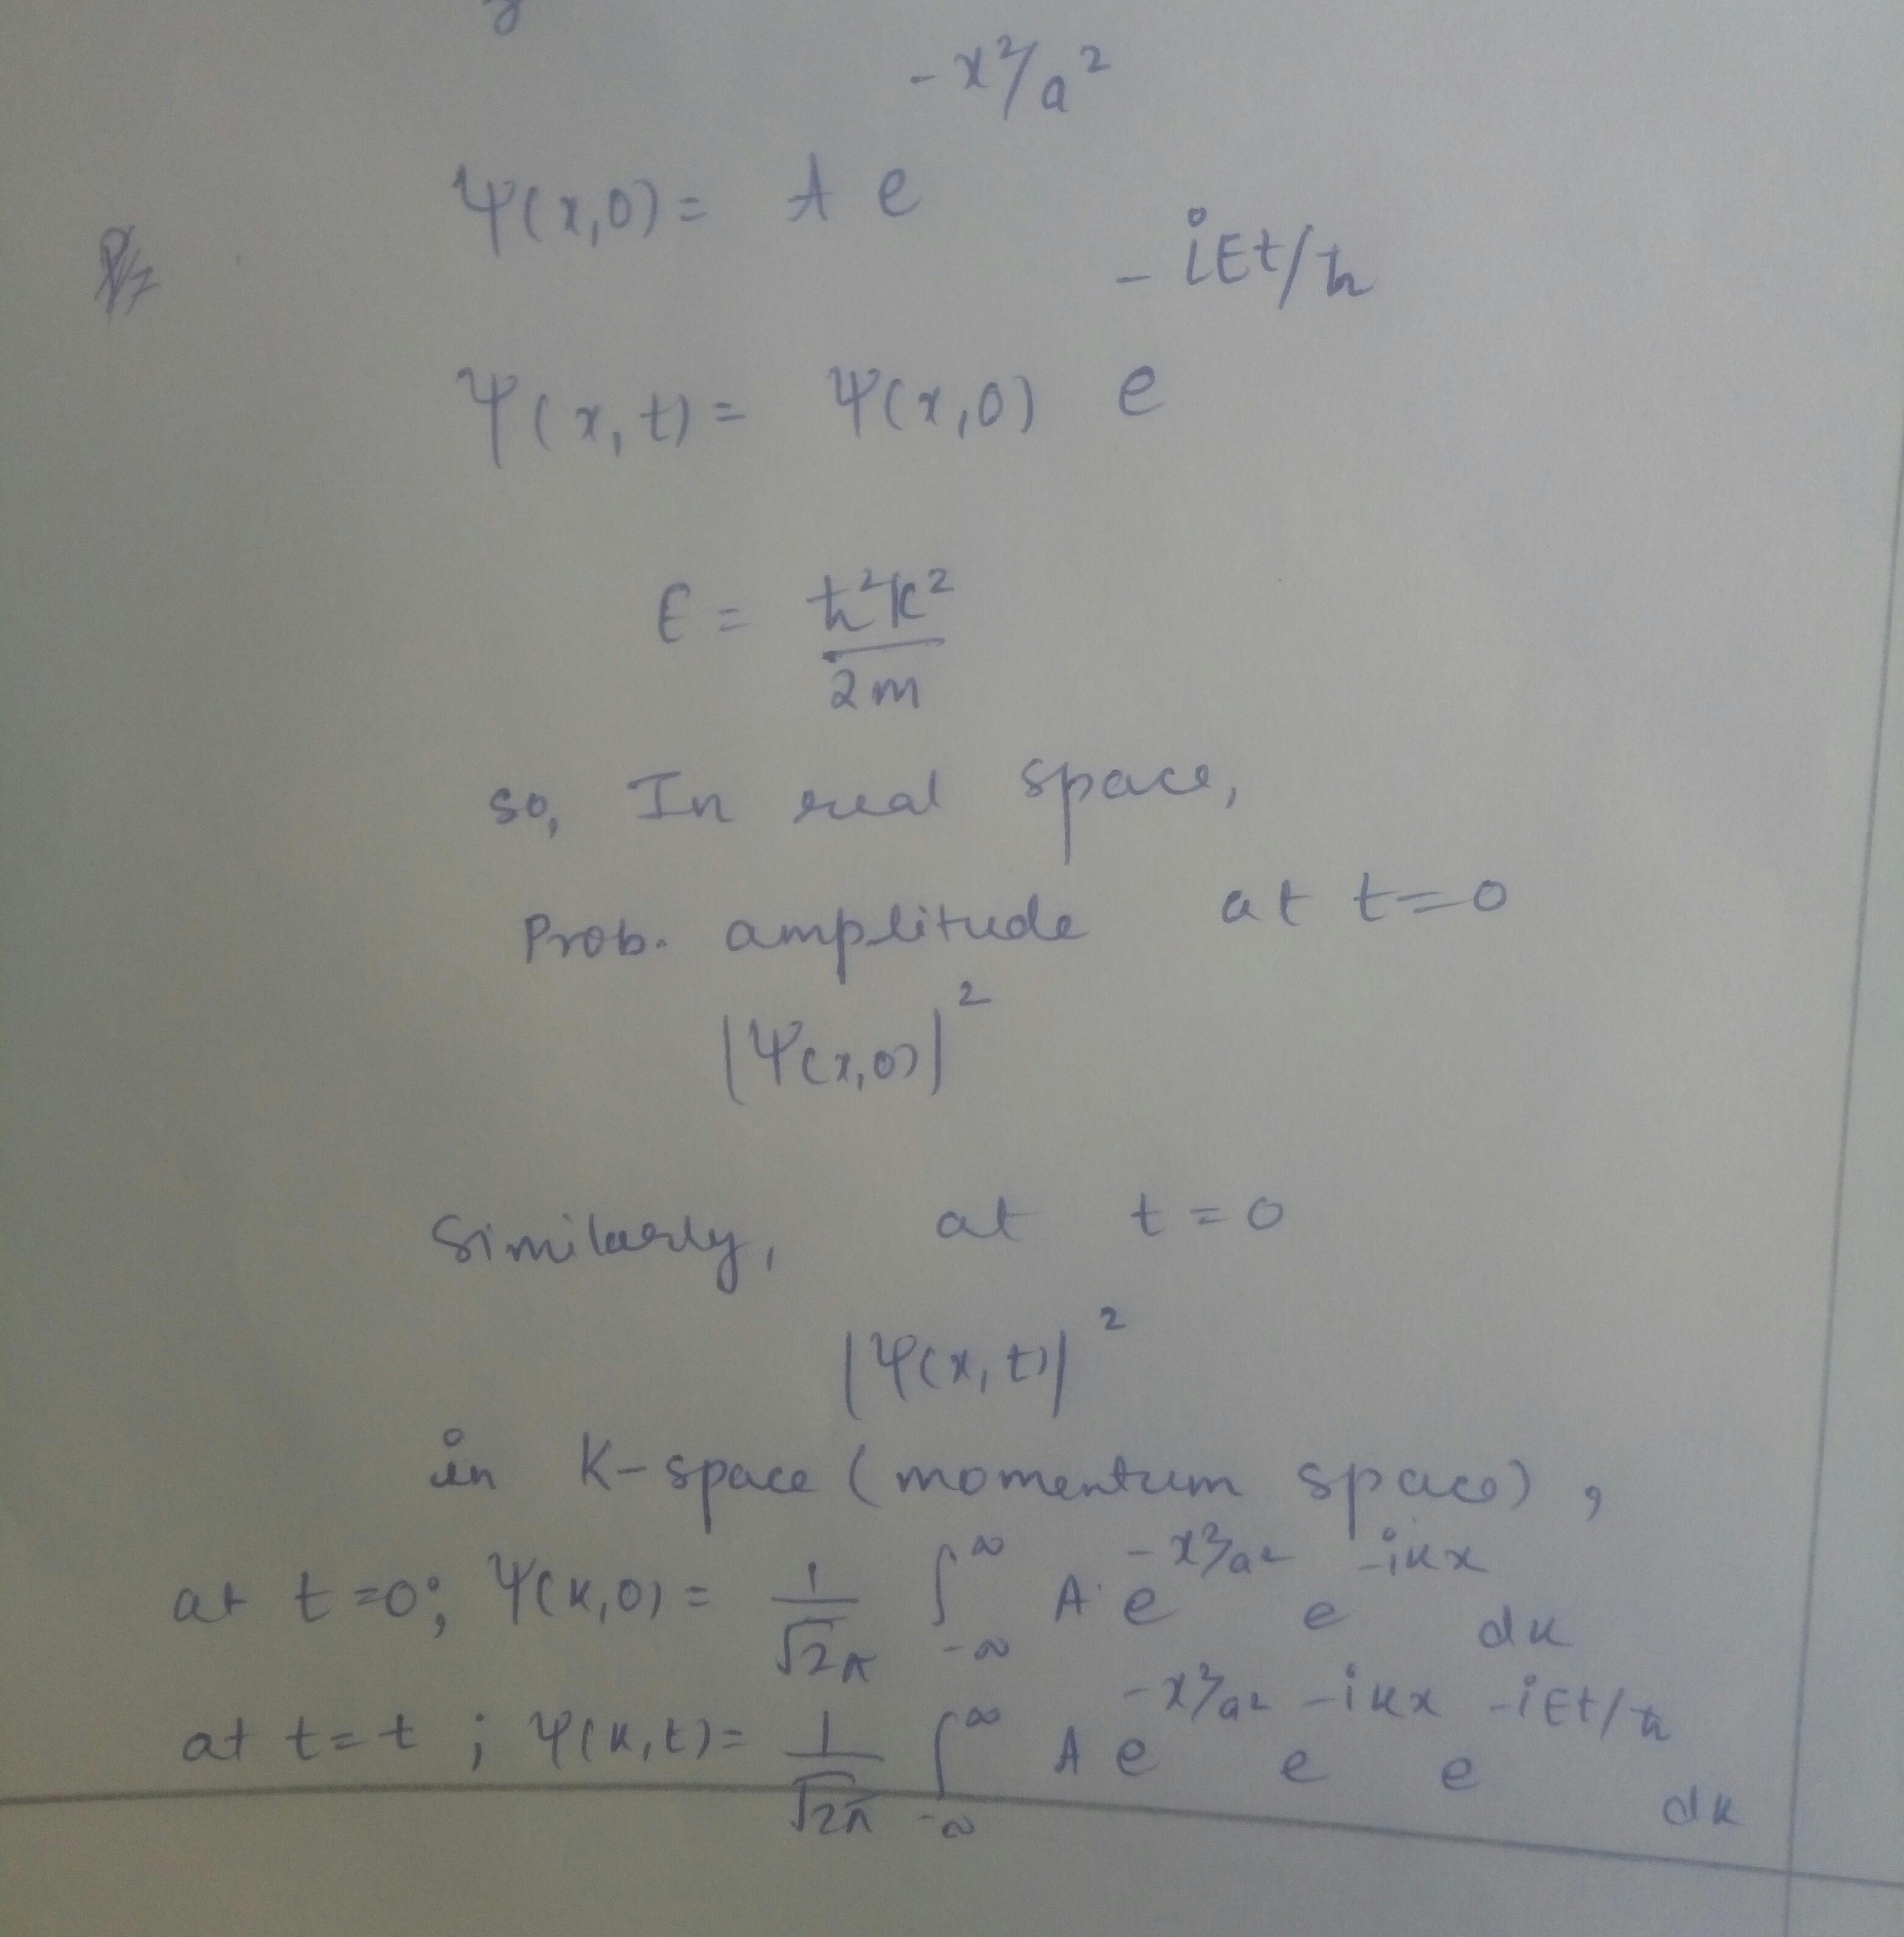 ψ(x,0) = A e^{-x²/a²}
ψ(x,t) = ψ(x,0) e^{-iEt/ħ}
E = ħ²k²/2m
so, In real space,
Prob. amplitude at t=0
|ψ(x,0)|²
Similarly, at t=0
|ψ(x,t)|²
in K-space (momentum space),
at t=0; ψ(k,0) = 1/√2π ∫_{-∞}^{∞} A e^{-x²/a²} e^{-ikx} dk
at t=t ; ψ(k,t) = 1/√2π ∫_{-∞}^{∞} A e^{-x²/a²} e^{-ikx} e^{-iEt/ħ} dk